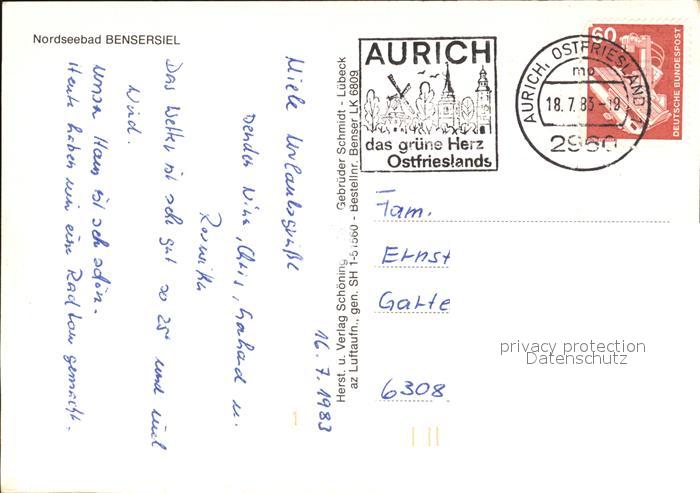 Nordseebad BENSERSIEL
16.7.1983
Viele Urlaubsgrüße
senden Nina, Chris, Gerhard u.
Roswitha
Das Wetter ist sehr gut so 25° und viel
Wind.
Unser Haus ist sehr schön.
Heute haben wir eine Radtour gemacht.
Herst. u. Verlag Schöning Gebrüder Schmidt - Lübeck
az Luftaufn., gen. SH 1-51560 - Bestellnr. Benser LK 6809
AURICH
das grüne Herz
Ostfrieslands
AURICH, OSTFRIESLAND 1
mb
18.7.83-18
2960
60
DEUTSCHE BUNDESPOST
Fam.
Ernst
Garte
6308
privacy protection
Datenschutz